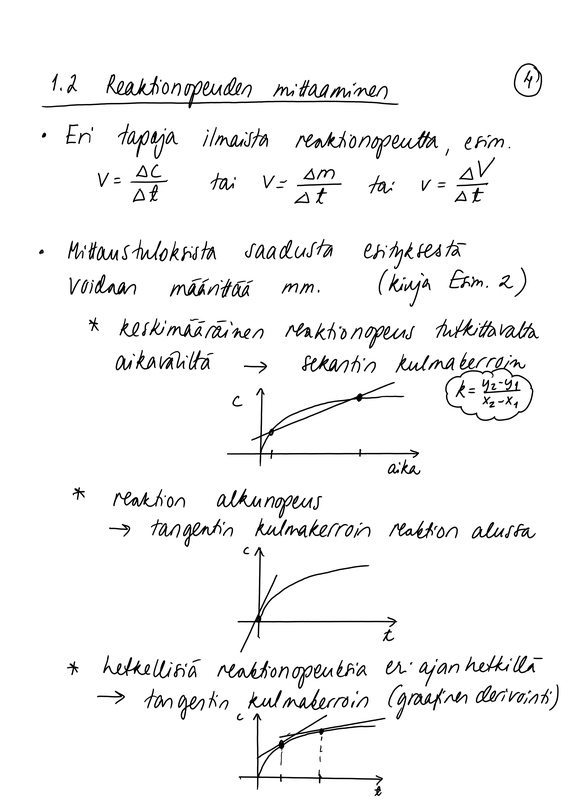 1.2 Reaktionopeuden mittaaminen
4
• Eri tapoja ilmaista reaktionopeutta, esim.
v = Δc/Δt tai v = Δm/Δt tai v = ΔV/Δt
• Mittaustuloksista saadusta esityksestä
voidaan määrittää mm. (kirja Esim. 2)
* keskimääräinen reaktionopeus tutkittavalta
aikaväliltä → sekantin kulmakerroin
k = y₂-y₁/x₂-x₁
c
aika
* reaktion alkunopeus
→ tangentin kulmakerroin reaktion alussa
c
t
* hetkellisiä reaktionopeuksia eri ajanhetkillä
→ tangentin kulmakerroin (graafinen derivointi)
c
t